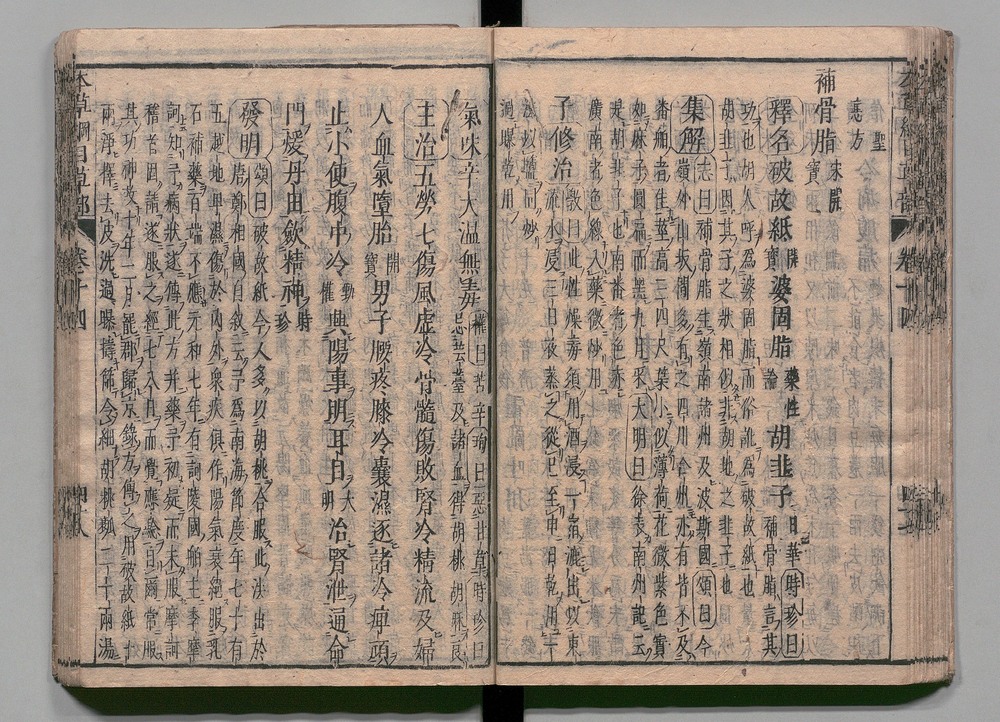 聖
惠方
補骨脂
宋開
寶
釋名破故紙開寶婆固脂藥性論胡韭子日華時珍曰
補骨脂言其
功也胡人呼爲婆固脂而俗訛爲破故紙也
胡韭子因其子之狀相似非胡地之韭子也
集解志曰補骨脂生嶺南諸州及波斯國頌曰今
嶺外山坂間多有之四川合州亦有皆不及
番舶者佳莖高三四尺葉小似薄荷花微紫色實
如麻子圓扁而黑九月采大明曰徐表南州記云
是胡韭子也南番者色赤
廣南者色綠入藥微炒用
子修治斅曰此性燥毒須用酒浸一宿漉出以東
流水浸三日夜蒸之從巳至申日乾用一
法以鹽同炒
過曝乾用
氣味辛大温無毒權曰苦辛珣曰惡甘草時珍曰
忌芸薹及諸血得胡桃胡麻良
主治五勞七傷風虛冷骨髓傷敗腎冷精流及婦
人血氣墮胎開寶男子腰疼膝冷囊濕逐諸冷痺頑
止小便腹中冷甄權興陽事明耳目大明治腎泄通命
門煖丹田斂精神時珍
發明頌曰破故紙今人多以胡桃合服此法出於
唐鄭相國自敘云予爲南海節度年七十有
五越地卑濕傷於內外衆疾俱作陽氣衰絕服乳
石補藥百端不應元和七年有訶陵國舶主李摩
訶知予病狀遂傳此方幷藥予初疑而未服摩訶
稽首固請遂服之經七八日而覺應驗自爾常服
其功神效十年二月罷郡歸京錄方傳之用破故紙十
兩淨擇去皮洗過曝擣篩令細胡桃瓤二十兩湯
本草綱目草部
卷十四
四十八